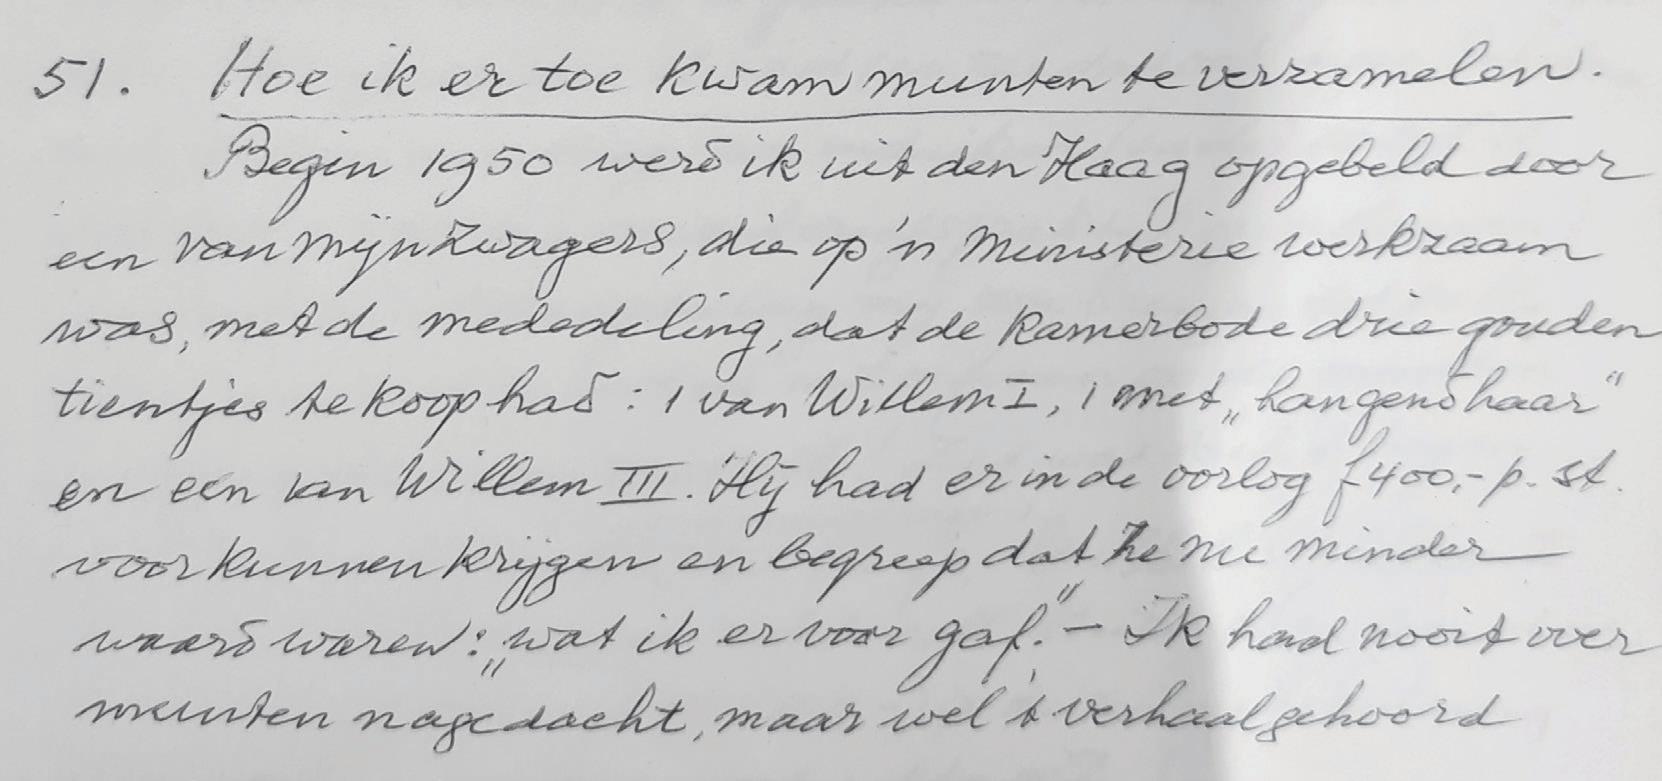 51. Hoe ik er toe kwam munten te verzamelen.
Begin 1950 werd ik uit den Haag opgebeld door
een van mijn zwagers, die op 'n Ministerie werkzaam
was, met de mededeling, dat de Kamerbode drie gouden
tientjes te koop had: 1 van Willem I, 1 met „hangend haar"
en een van Willem III. Hij had er in de oorlog f400,- p. st.
voor kunnen krijgen en begreep dat ze nu minder
waard waren: „wat ik er voor gaf." – Ik had nooit over
munten nagedacht, maar wel 't verhaal gehoord